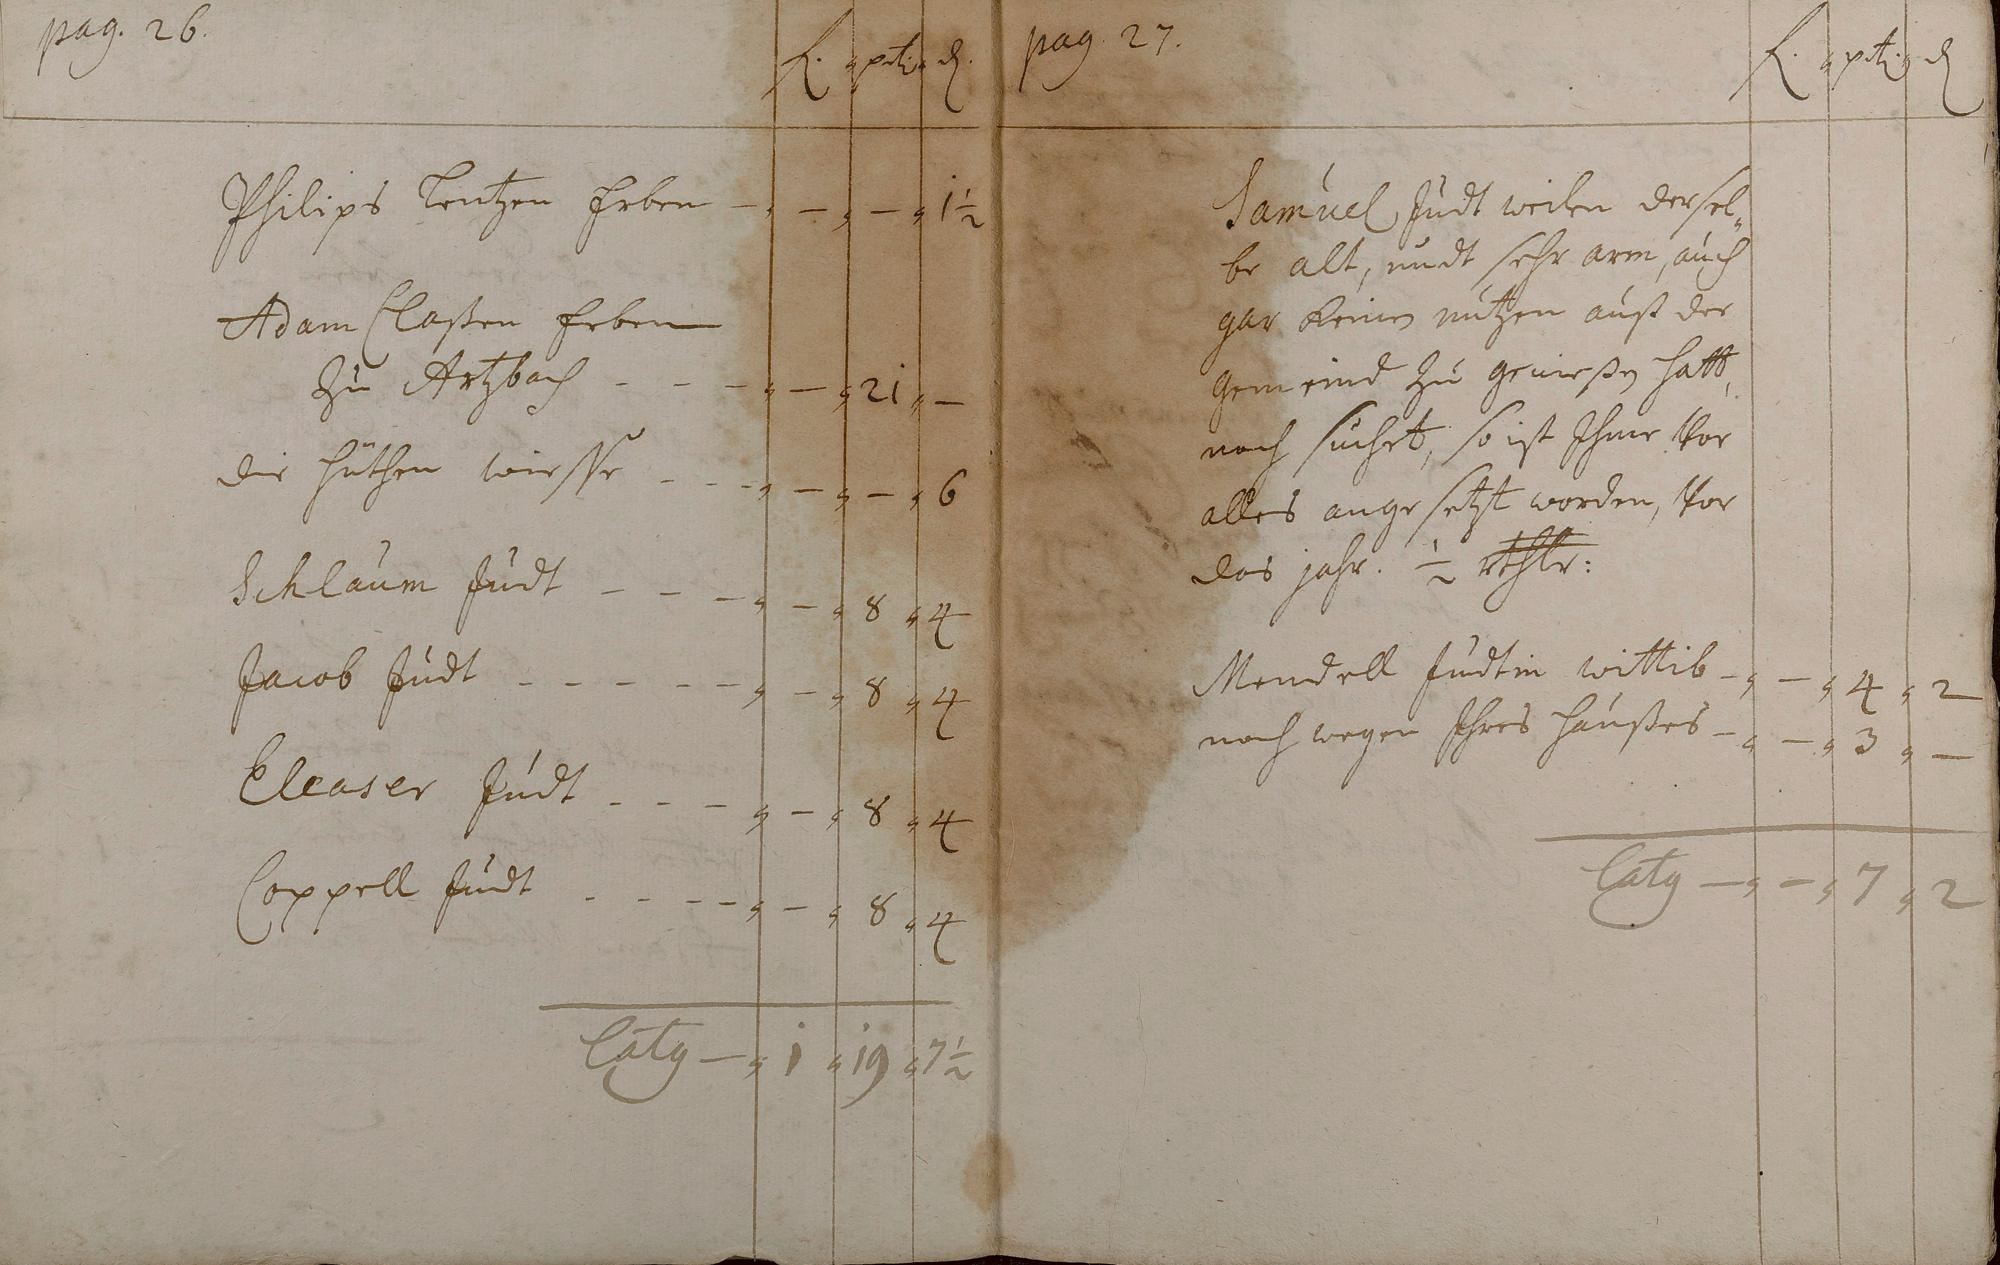 pag. 26.
f. " pet: " d.
Philips Lentzen Erben — " — " — " 1½
Adam Claßen Erben
zu Artzbach - - - " — " 21 " —
die Hüthen wiesse - - - " — " — " 6
Schlaum Judt - - - - " — " 8 " 4
Jacob Judt - - - - - " — " 8 " 4
Eleaser Judt - - - " — " 8 " 4
Coppell Judt - - - - " — " 8 " 4
Latg — " 1 " 19 " 7½
pag. 27.
f. " pet: " d
Samuel Judt weilen dersel„
be alt, undt sehr arm, auch
gar keinen nutzen auß der
gemeind zu genießen hatt,
noch suchet, so ist Ihme vor
alles angesetzt worden, vor
das jahr. ½ rthlr:
Mendell Judtin wittib — " — " 4 " 2
noch wegen Ihres haußes — " — " 3 " —
Latg — " — " 7 " 2